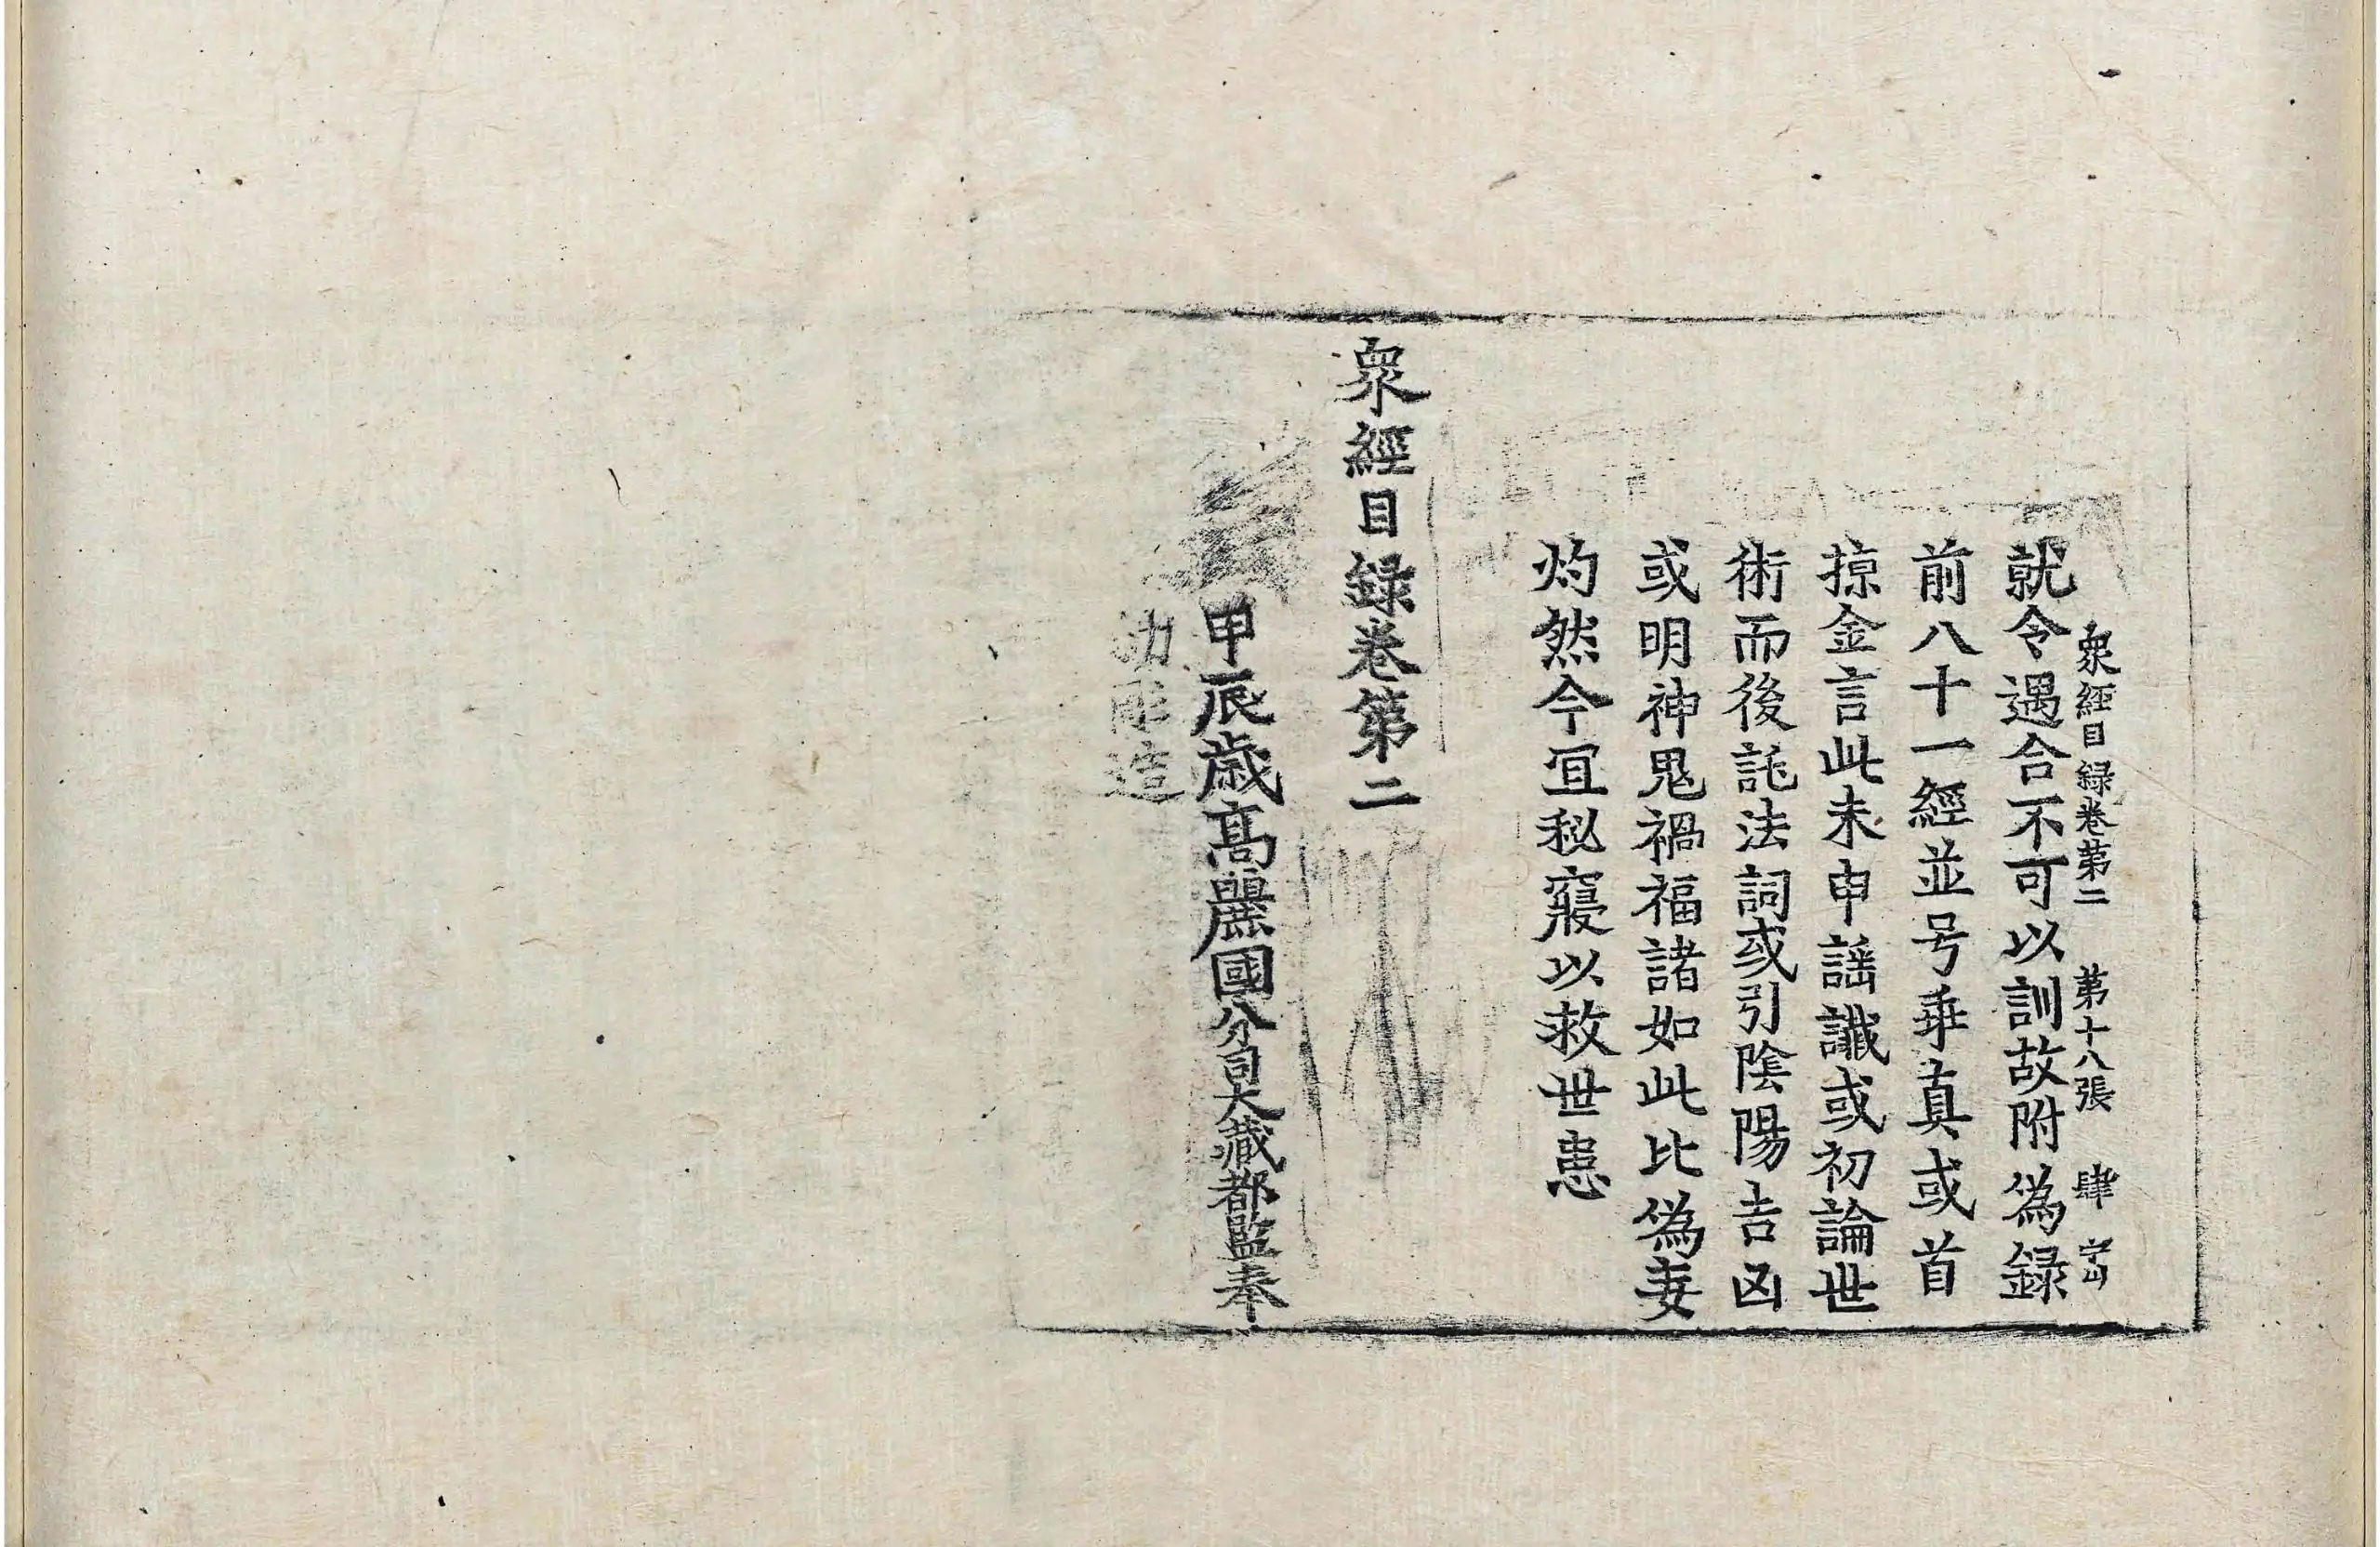 衆經目録卷第二　第十八張　肆
就令遇合不可以訓故附偽録
前八十一經並号乖真或首
掠金言此末申謡讖或初論世
術而後託法詞或引陰陽吉凶
或明神鬼禍福諸如此比偽妄
灼然今冝秘寢以救世患
衆經目録卷第二
甲辰歳髙麗國分司大藏都監奉
勑彫造